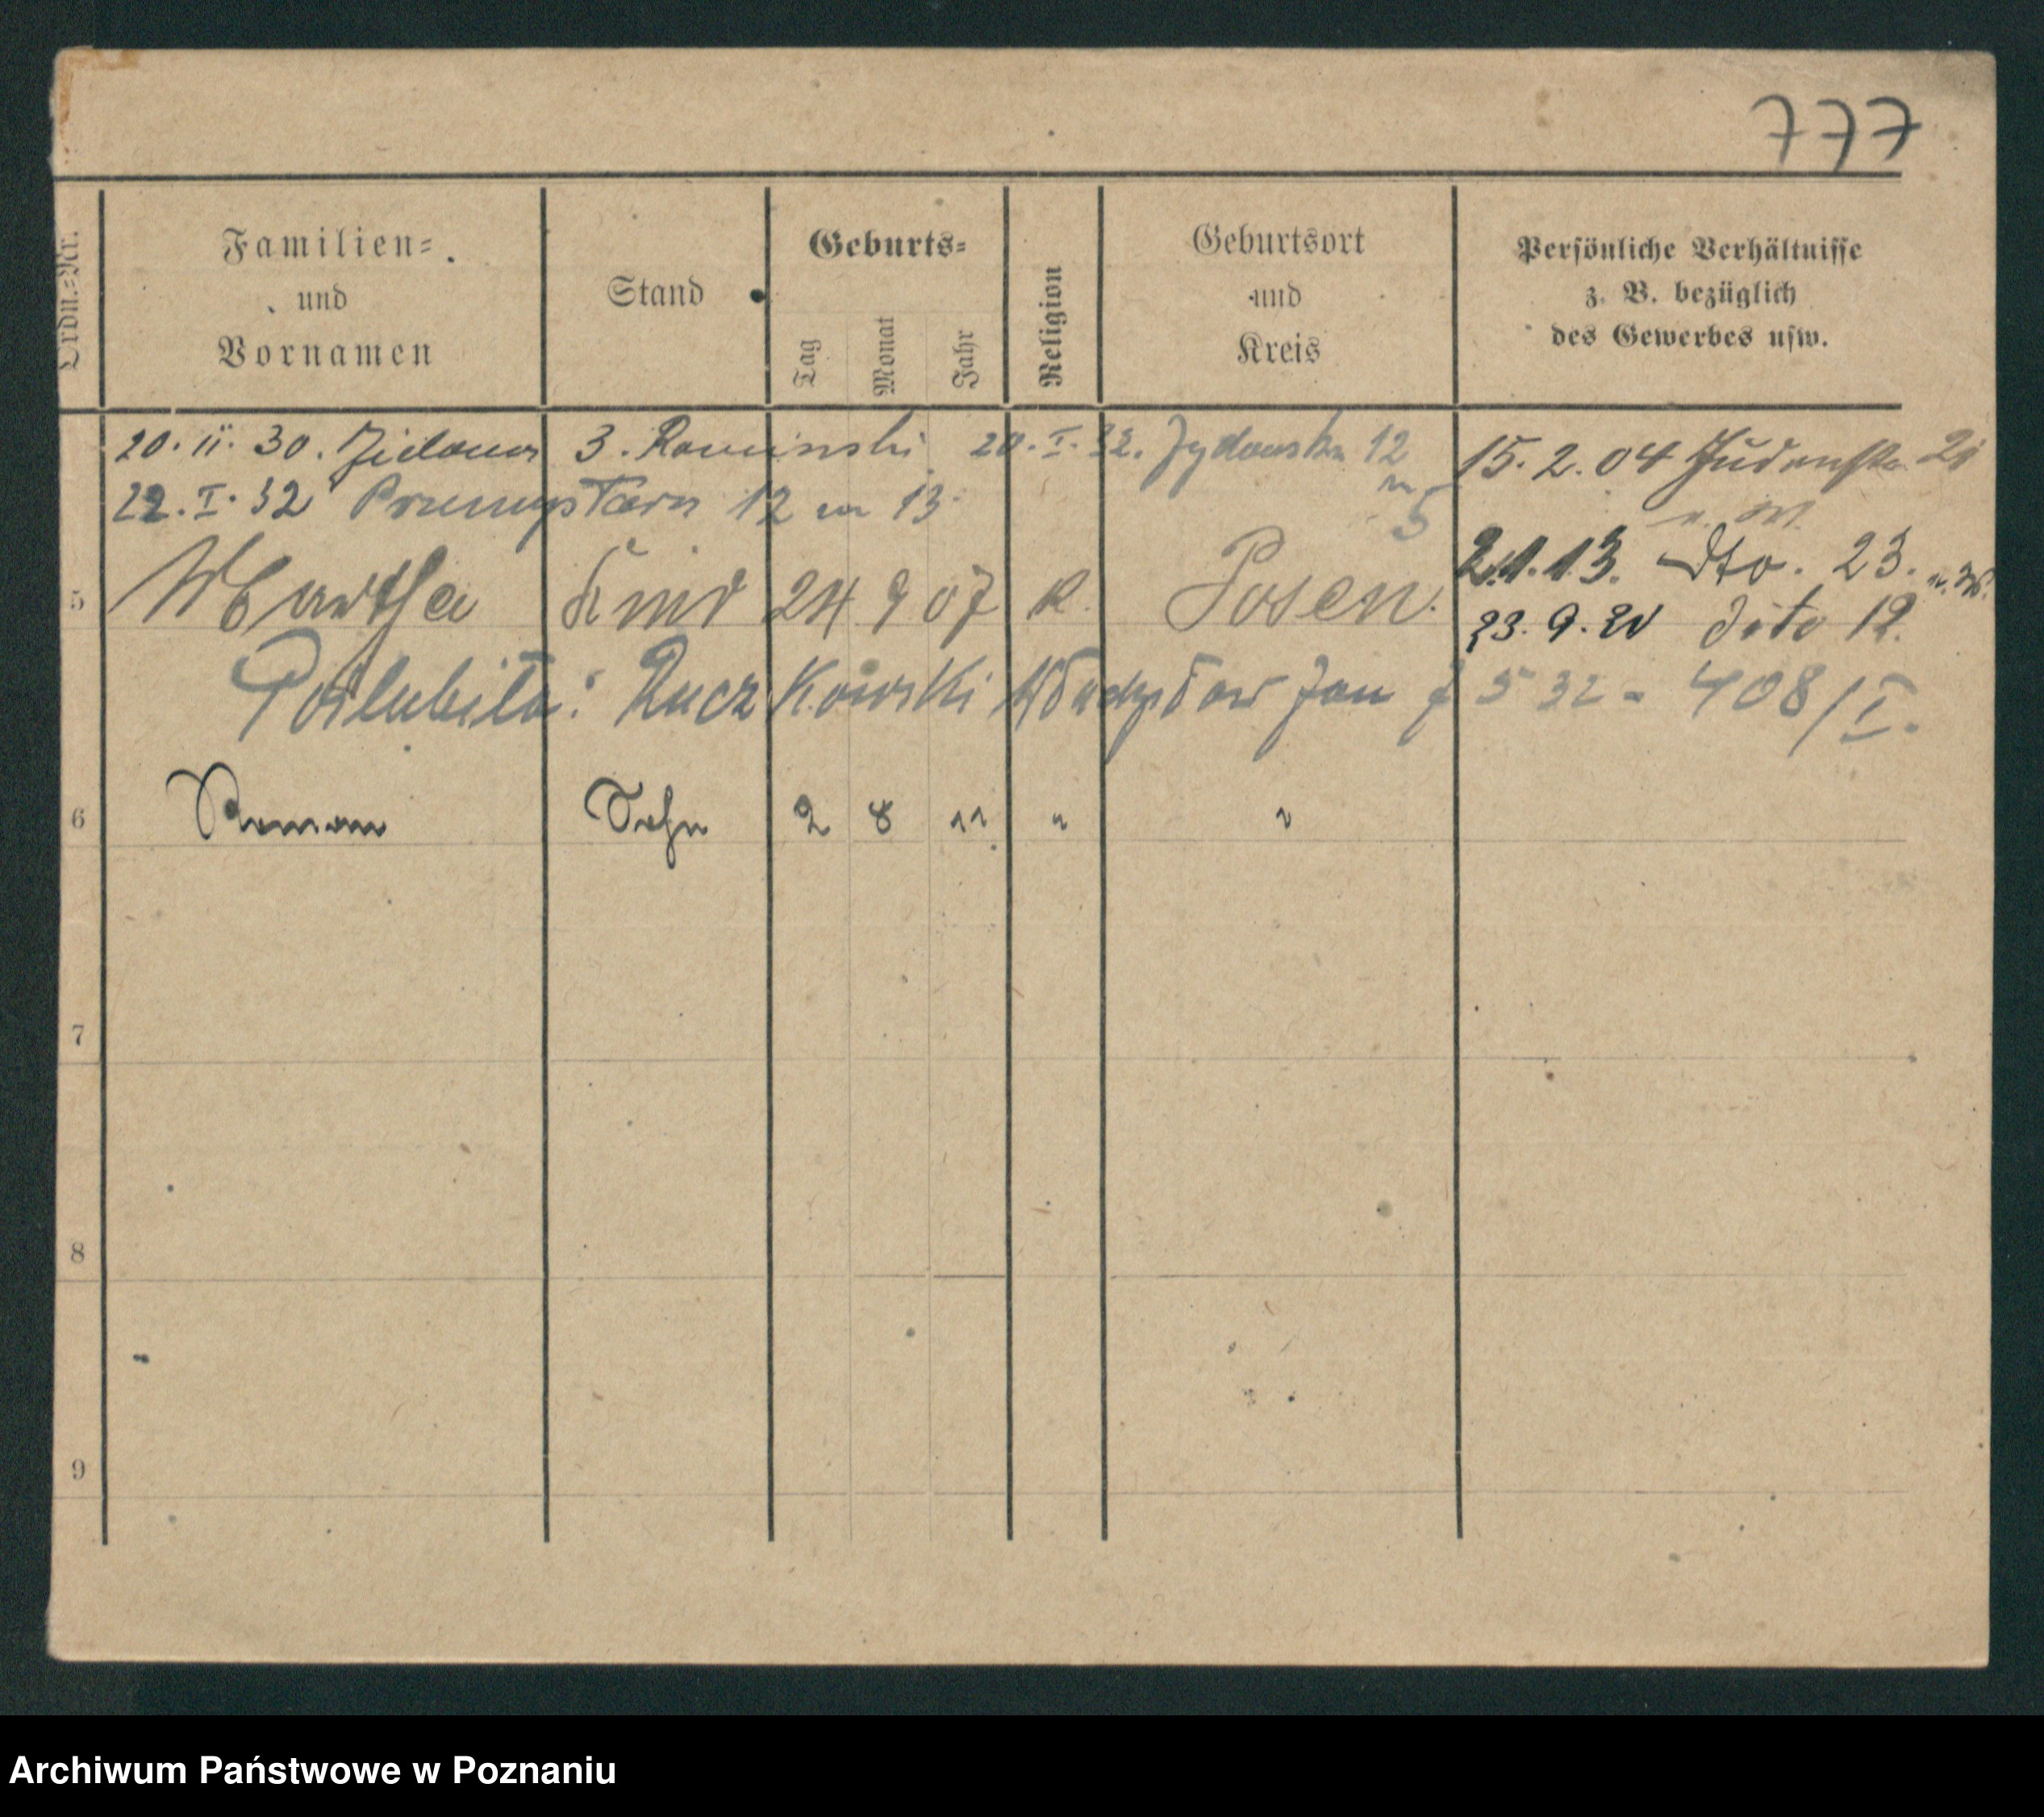 777
Ordn.-Nr.
Familien-
und
Vornamen
Stand
Geburts-
Tag
Monat
Jahr
Religion
Geburtsort
und
Kreis
Persönliche Verhältnisse
z. B. bezüglich
des Gewerbes usw.
20. 11. 30. Zielona 3. 20. I. 32. Żydowska 12
m 5
22. I. 32 12 m 13
15. 2. 04 Judenstr. 21
u. W.
2.1.13. dto. 23. u. W.
23. 9. 20 dito 12.
5 Martha Kind 24 9 07 k. Posen.
Poślubiła: Ruczkowski Władysław Jan 532 - 408/I.
6 Roman Sohn 2 8 11 " "
7
8
9
Archiwum Państwowe w Poznaniu